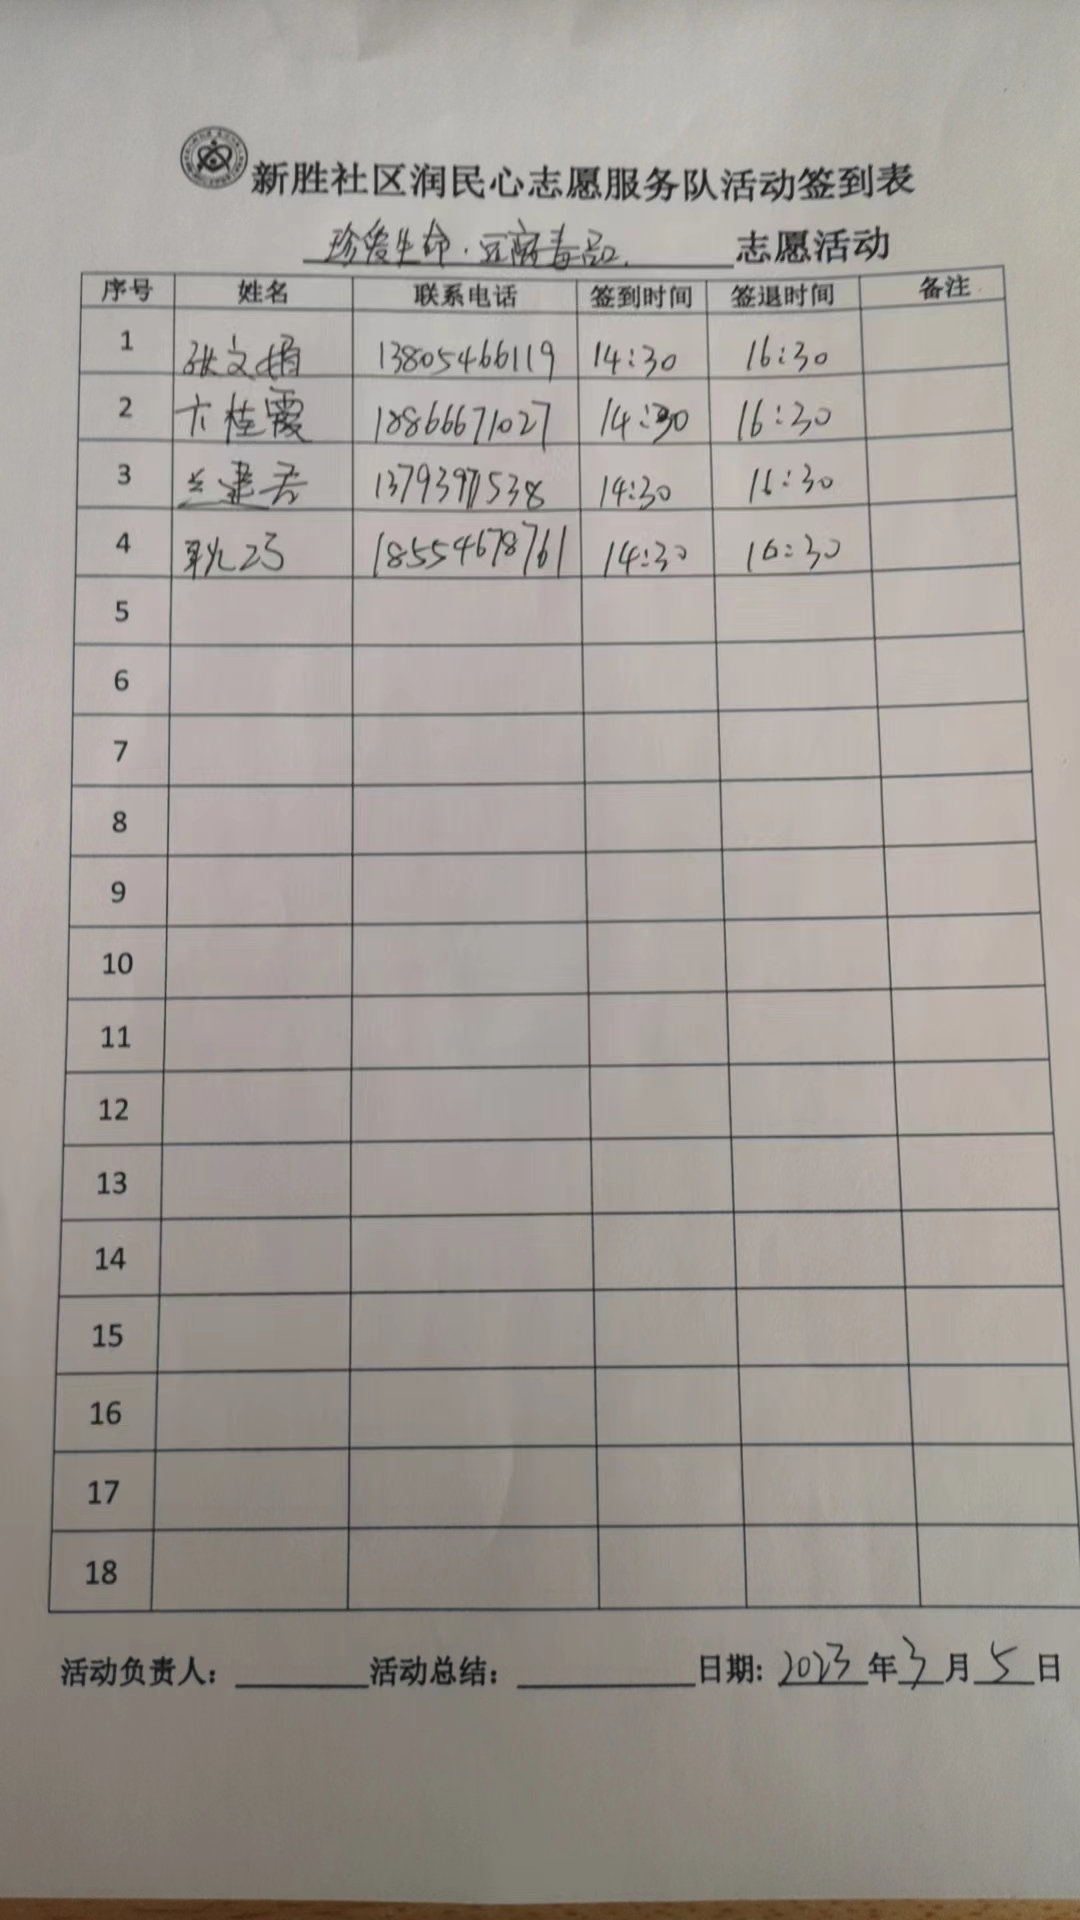 新胜社区润民心志愿服务队活动签到表
珍爱生命.远离毒品. 志愿活动
序号 姓名 联系电话 签到时间 签退时间 备注
1 张文娟 13805466119 14:30 16:30
2 桂霞 18866671027 14:30 16:30
3 兰建君 13793971538 14:30 16:30
4 18554678761 14:30 16:30
5
6
7
8
9
10
11
12
13
14
15
16
17
18
活动负责人: 活动总结: 日期: 2023年3月5日